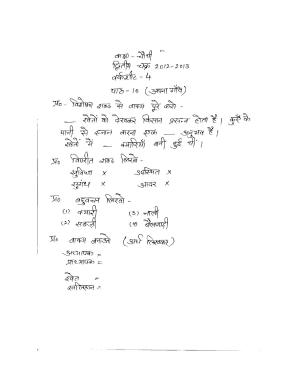 कक्षा - चौथी
द्वितीय सत्र 2012-2013
वर्कशीट - 4
पाठ - 16 (अपना गाँव)
प्र० - विशेषण शब्द से वाक्य पूरे करो -
__ खेतों को देखकर किसान प्रसन्न होता है। कुएँ के
पानी से स्नान करना एक __ अनुभव है।
खेतों में __ क्यारियाँ बनी हुई थीं।
प्र० विपरीत शब्द लिखो -
सुविधा x उपस्थित x
सुगंध x आदर x
प्र० बहुवचन लिखो -
(1) क्यारी (3) नाली
(2) सब्ज़ी (4) बैलगाड़ी
प्र० वाक्य बनाओ (अर्थ लिखकर)
अध्यापक =
प्राध्यापक =
खेत =
खलिहान =